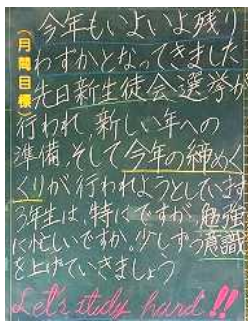 (月間目標)
今年もいよいよ残り
わずかとなってきました
先日新生徒会選挙が
行われ、新しい年への
準備、そして今年の締めく
くりが行われようとしています
3年生は、特にですが、勉強
に忙しいですか。少しずつ意識
を上げていきましょう
Let's study hard!!